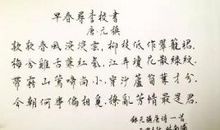 早春寻李校书
唐 元稹
款款春风澹澹云，柳枝低作翠栊裙。
梅含鸡舌兼红气，江弄琼花散绿纹。
带雾山莺啼尚小，穿沙芦笋叶才分。
今朝何事偏相觅，撩乱芳情最是君。
录元稹唐诗一首